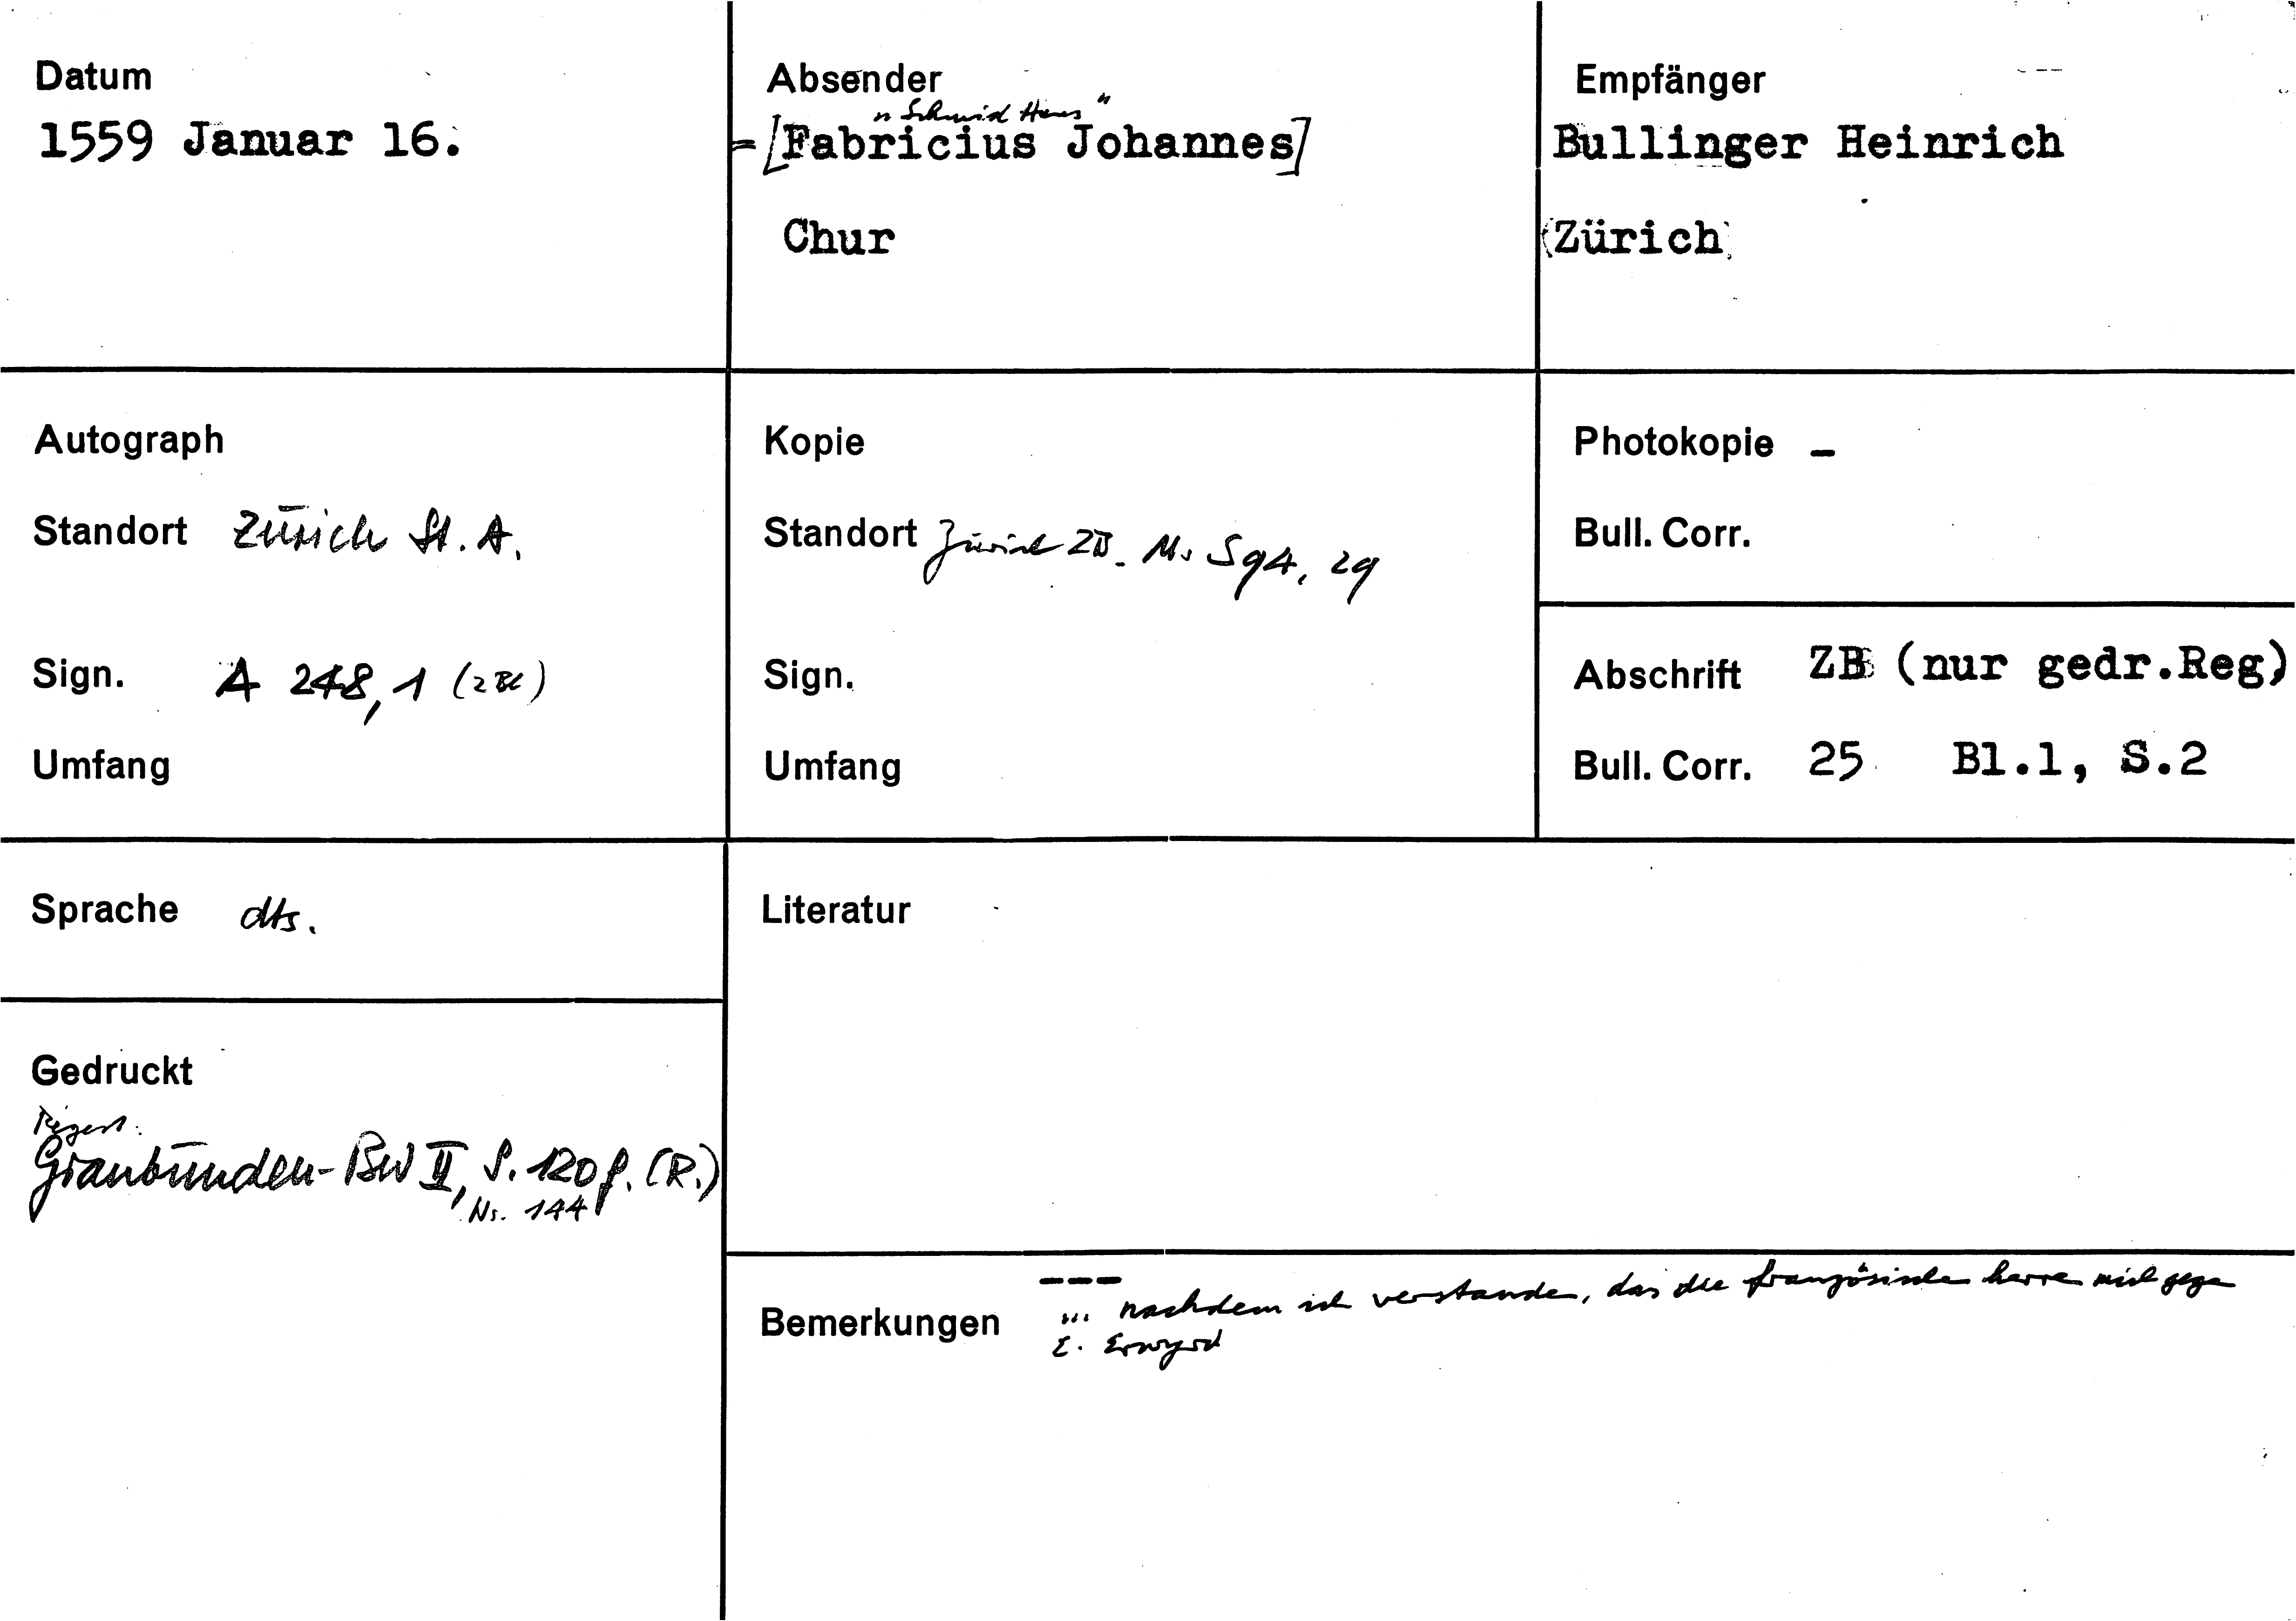 Datum
1559 Januar 16.
Absender
"Schmid Hans"
=[Fabricius Johannes]
Chur
Empfänger
Bullinger Heinrich
(Zürich)
Autograph
Standort Zürich St. A.
Sign. A 248, 1 (2 Bl)
Umfang
Kopie
Standort Zürich ZB. Ms S 94, 29
Sign.
Umfang
Photokopie -
Bull. Corr.
Abschrift ZB (nur gedr.Reg)
Bull. Corr. 25 Bl.1, S.2
Sprache dts.
Literatur
Gedruckt
Regest:
Graubünden-BW II, S. 120 f. (R.)
Nr. 144
Bemerkungen
---
... nachdem ich verstanden, das die französische herre mich gege
E.